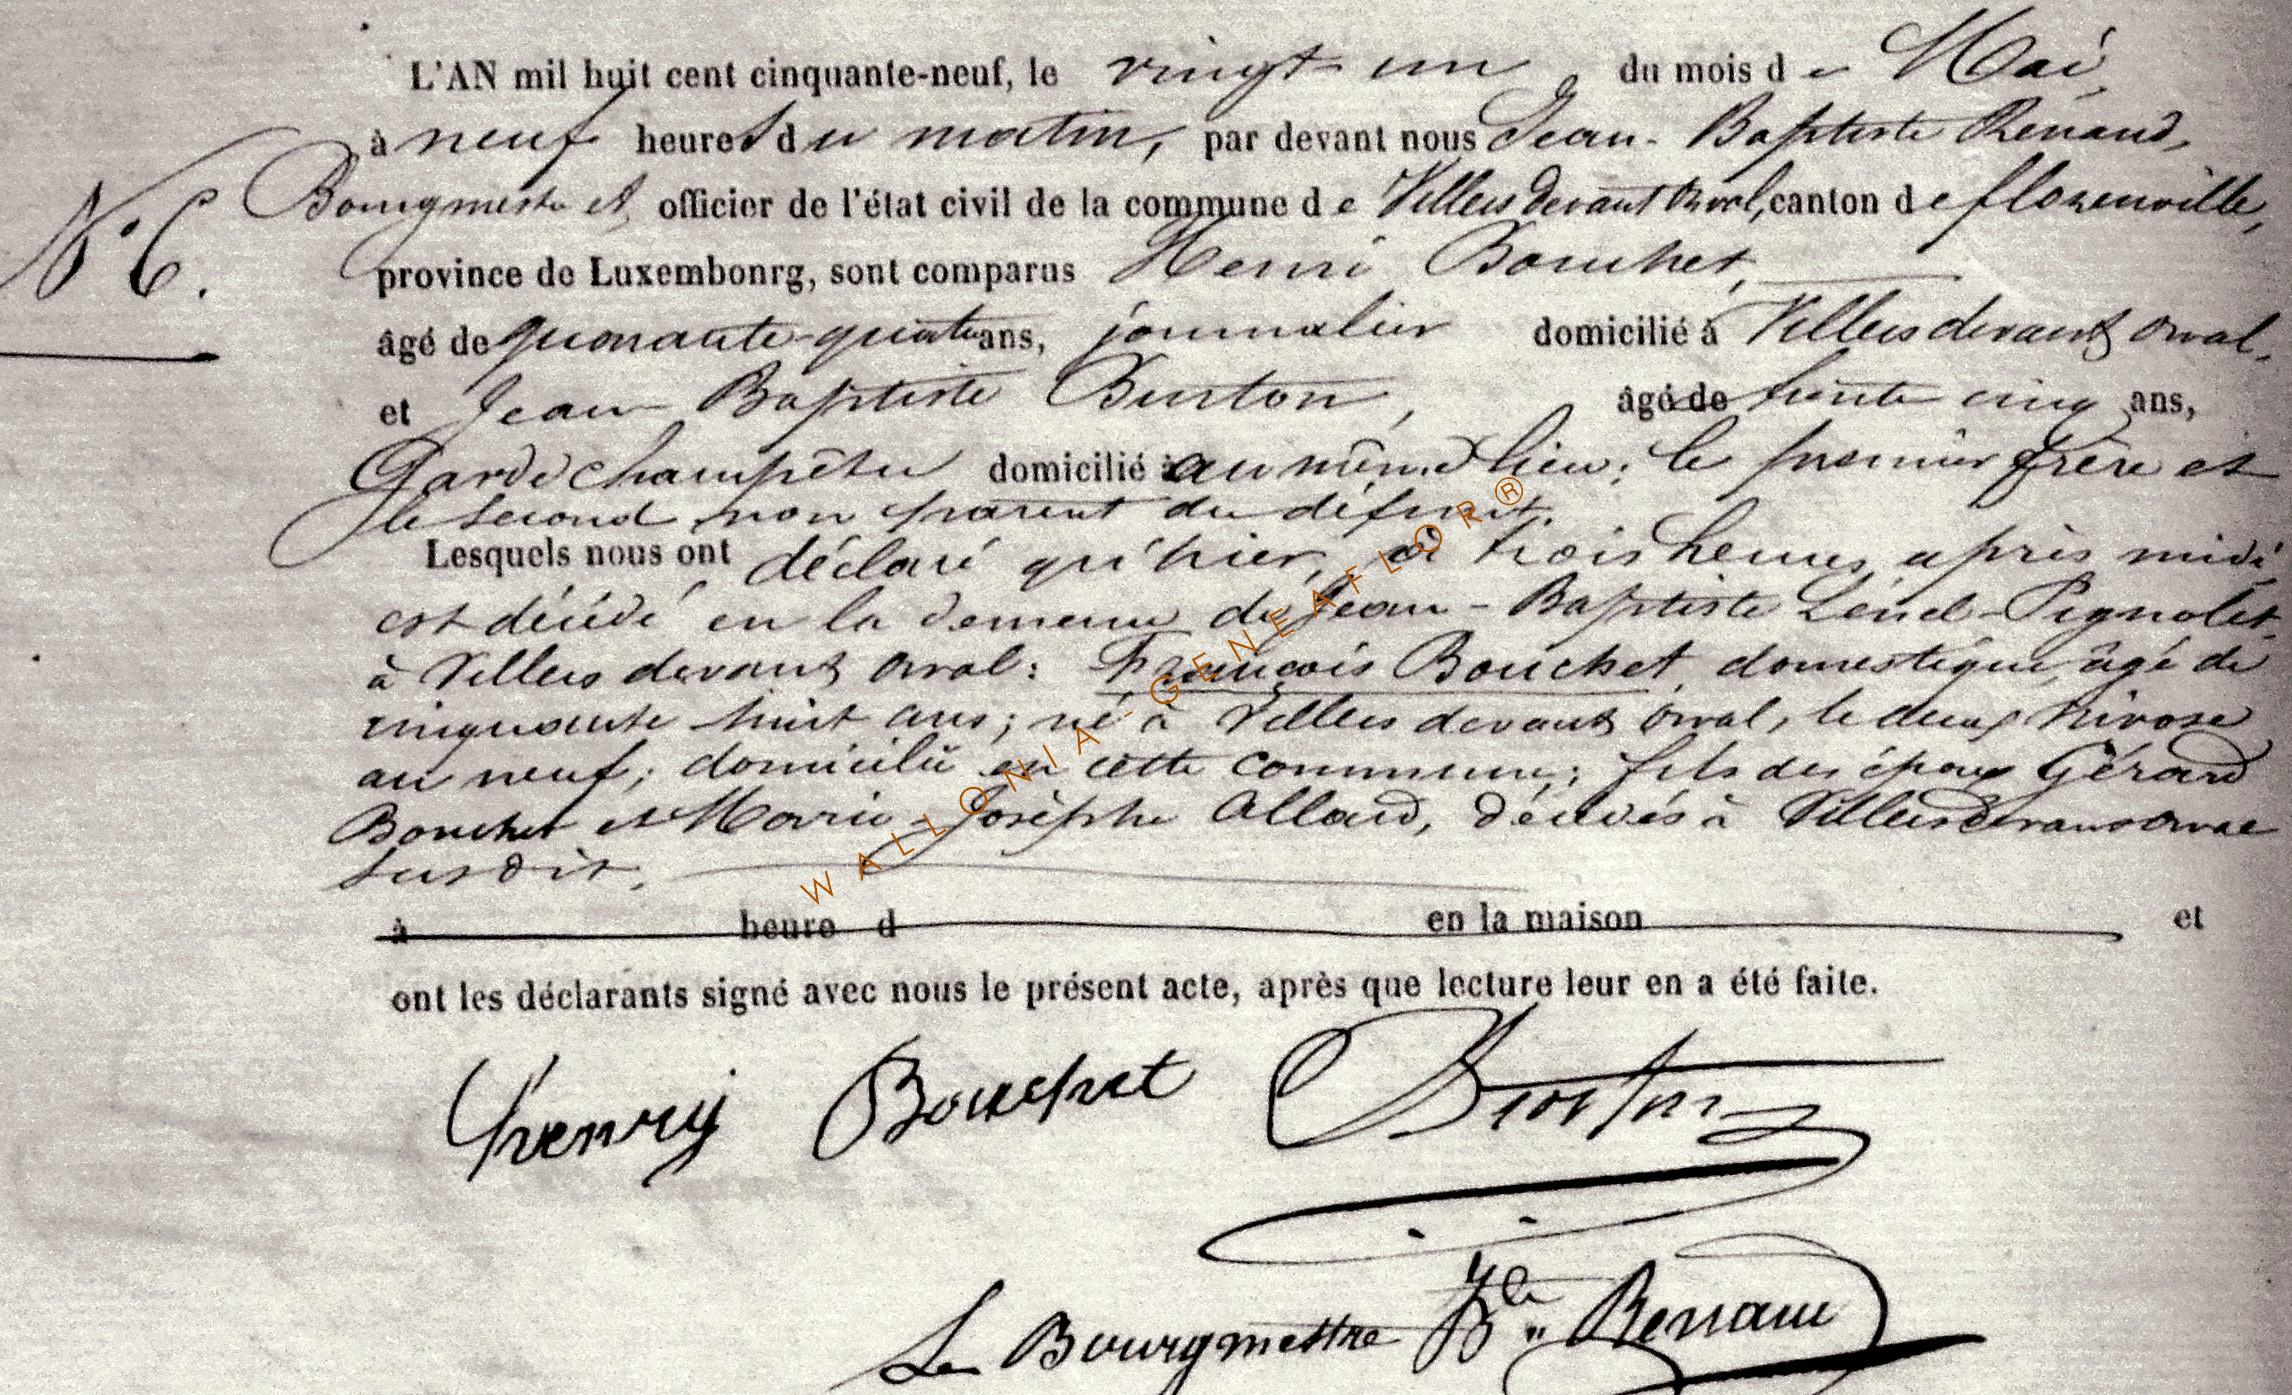 L'AN mil huit cent cinquante-neuf, le vingt un du mois de Mai,
à neuf heures du matin, par devant nous Jean-Baptiste Renaud,
Bourgmestre et, officier de l'état civil de la commune de Villers devant Orval, canton de florenville,
N° 6.
province de Luxembonrg, sont comparus Henri Bouchet,
âgé de quarante-quatre ans, journalier domicilié à Villers devant Orval.
et Jean Baptiste Burton, âgé de trente cinq ans,
Garde champêtre domicilié au même lieu; le premier frère et
le second non parent du défunt.
Lesquels nous ont déclaré qu'hier, à trois heures après midi
est décédé en la demeure de Jean-Baptiste Pignolet
à Villers devant Orval: François Bouchet, domestique, âgé de
cinquante huit ans; né à Villers devant Orval, le deux Nivose
an neuf; domicilié en cette commune; fils des époux Gérard
Bouchet et Marie-Josèphe Allard, décédés à Villers devant Orval
susdit.
à heure d en la maison et
ont les déclarants signé avec nous le présent acte, après que lecture leur en a été faite.
henry Bouchet Burton
Le Bourgmestre J B Renaud
WALLONIA-GENEAFLOR®